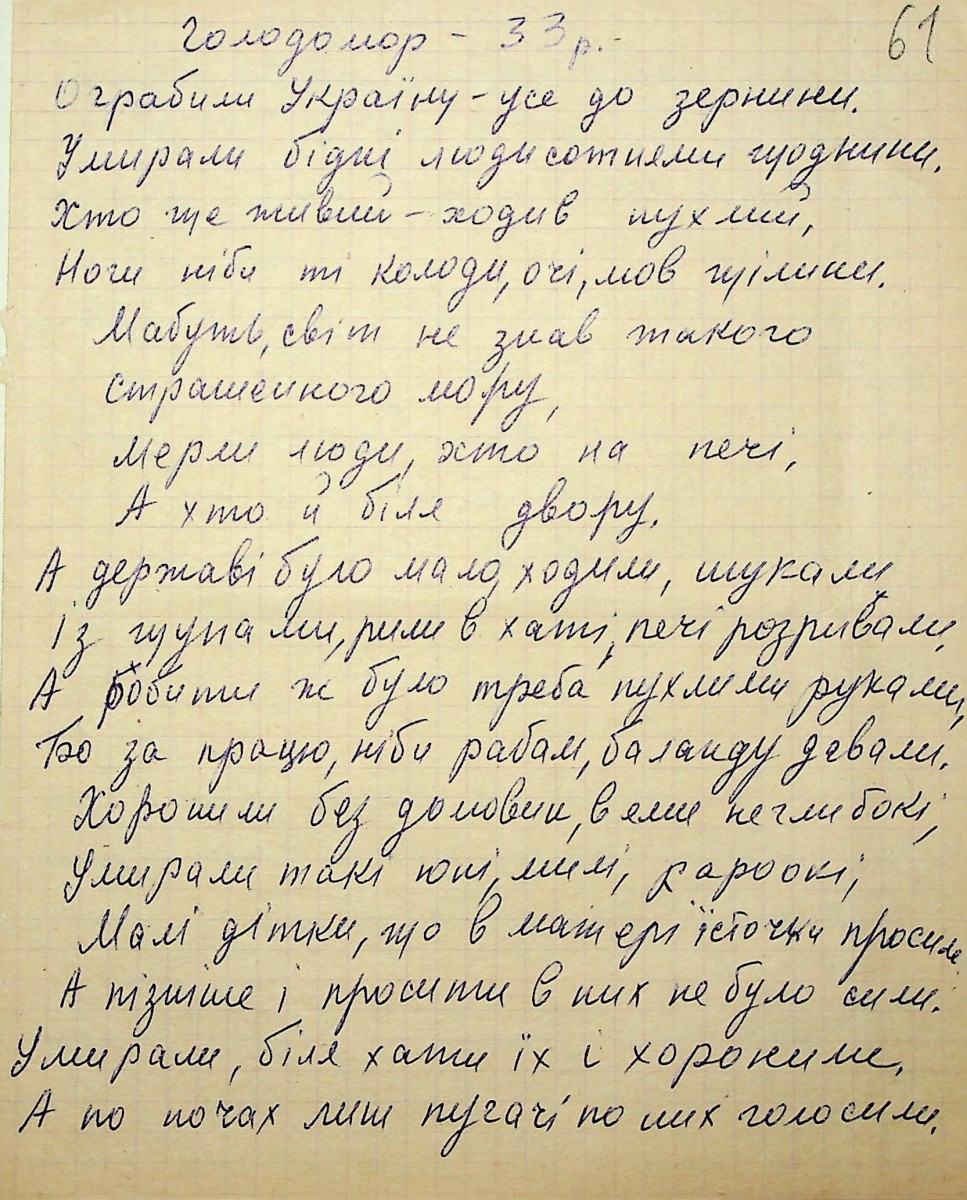 Голодомор - 33 р.-
61
Ограбили Україну - усе до зернини.
Умирали бідні люди сотнями щоднини.
Хто ще живий - ходив пухлий,
Ноги ніби ті колоди, очі, мов щілини.
Мабуть, світ не знав такого
страшенного мору,
Мерли люди, хто на печі,
А хто й біля двору.
А державі було мало, ходили, шукали,
Із щупами, рили в хаті, печі розривали,
А робити ж було треба пухлими руками,
Бо за працю, ніби рабам, баланду давали.
Хоронили без домовин, в ями неглибокі,
Умирали такі юні, милі, кароокі,
Малі дітки, що в матері їсточки просили
А пізніше і просити в них не було сили.
Умирали, біля хати їх і хоронили.
А по ночах лиш пугачі по них голосили.